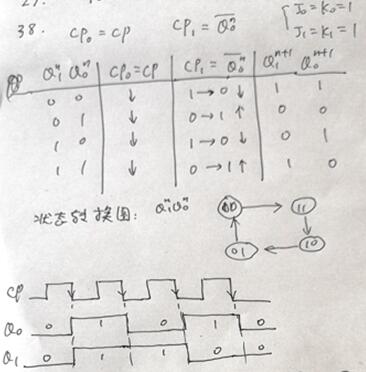 38. CP₀=CP CP₁=\overline{Q₀ⁿ} { J₀=K₀=1
J₁=K₁=1
Q₁ⁿ Q₀ⁿ CP₀=CP CP₁=\overline{Q₀ⁿ} Q₁ⁿ⁺¹ Q₀ⁿ⁺¹
0 0 ↓ 1→0 ↓ 1 1
0 1 ↓ 0→1 ↑ 0 0
1 0 ↓ 1→0 ↓ 0 1
1 1 ↓ 0→1 ↑ 1 0
状态转换图: Q₁ⁿQ₀ⁿ 00 11
01 10
CP
Q₀ 0 1 0 1 0
Q₁ 0 1 1 0 0